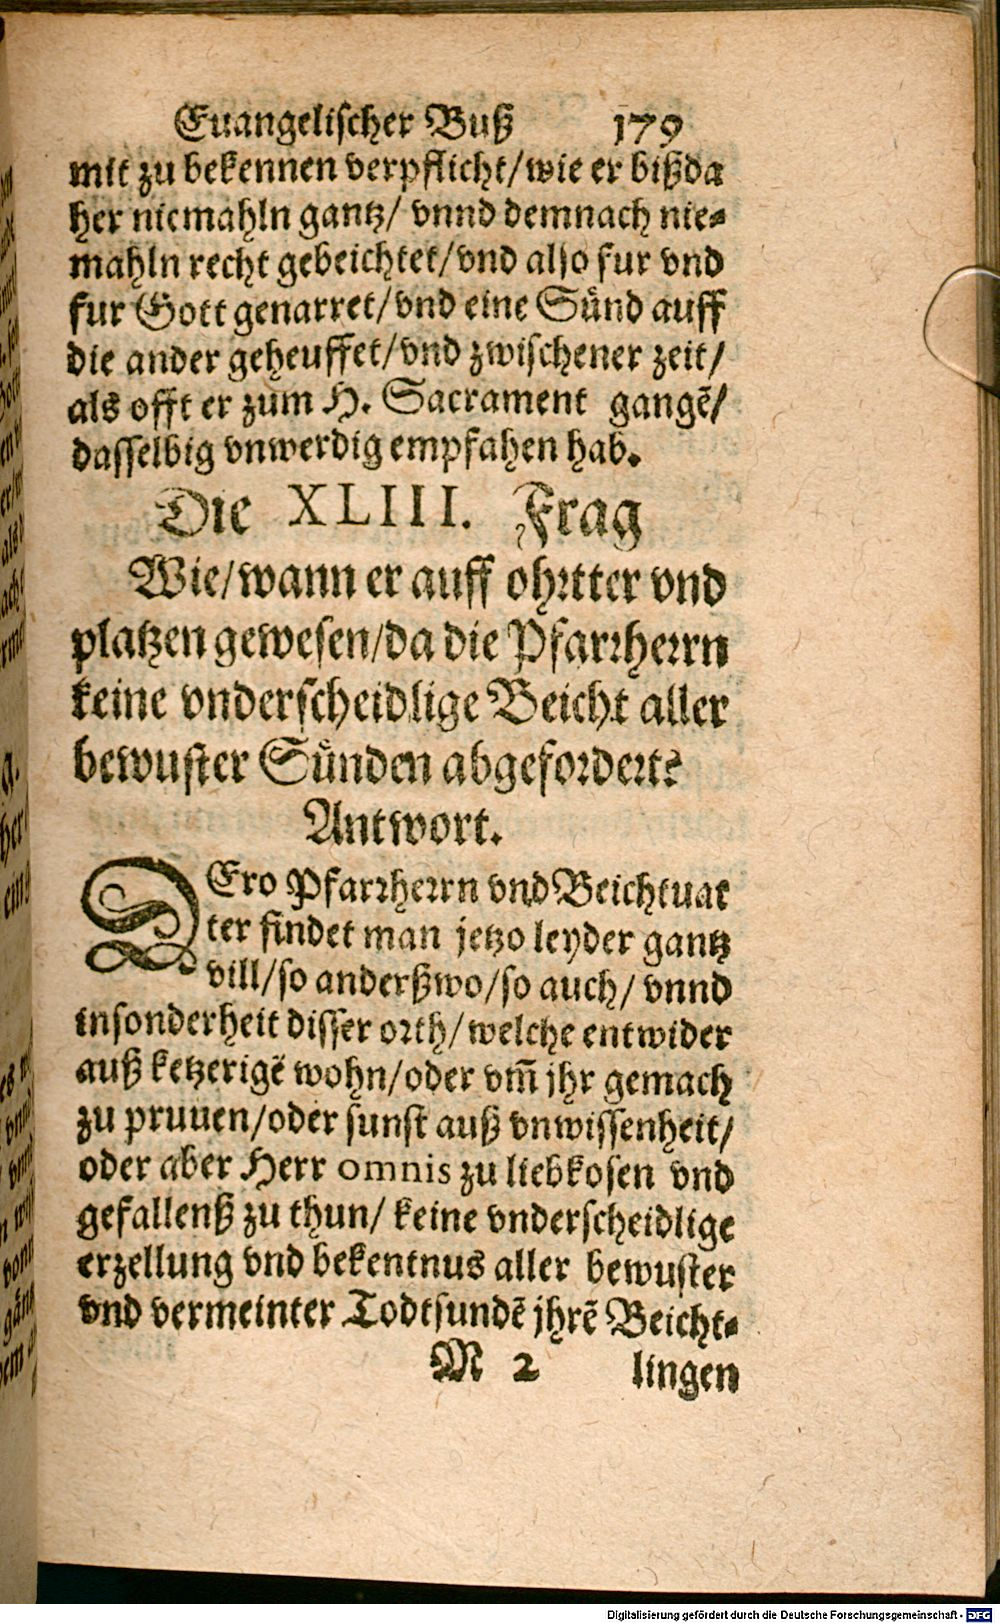 Euangelischer Buß 179
mit zu bekennen verpflicht/wie er bißda
her niemahln gantz/ vnnd demnach nie-
mahln recht gebeichtet/vnd also fur vnd
fur Gott genarret/vnd eine Sünd auff
die ander geheuffet/vnd zwischener zeit/
als offt er zum H. Sacrament gangẽ/
dasselbig vnwerdig empfahen hab.
Die XLIII. Frag
Wie/wann er auff ohrtter vnd
platzen gewesen/da die Pfarrherrn
keine vnderscheidlige Beicht aller
bewuster Sünden abgefordert?
Antwort.
DEro Pfarrherrn vnd Beichtuat
ter findet man jetzo leyder gantz
vill/so anderßwo/so auch/ vnnd
insonderheit disser orth/welche entwider
auß ketzerigẽ wohn/oder vm̃ jhr gemach
zu pruuen/oder sunst auß vnwissenheit/
oder aber Herr omnis zu liebkosen vnd
gefallenß zu thun/ keine vnderscheidlige
erzellung vnd bekentnus aller bewuster
vnd vermeinter Todtsundẽ jhrẽ Beicht-
M 2 lingen
Digitalisierung gefördert durch die Deutsche Forschungsgemeinschaft - DFG